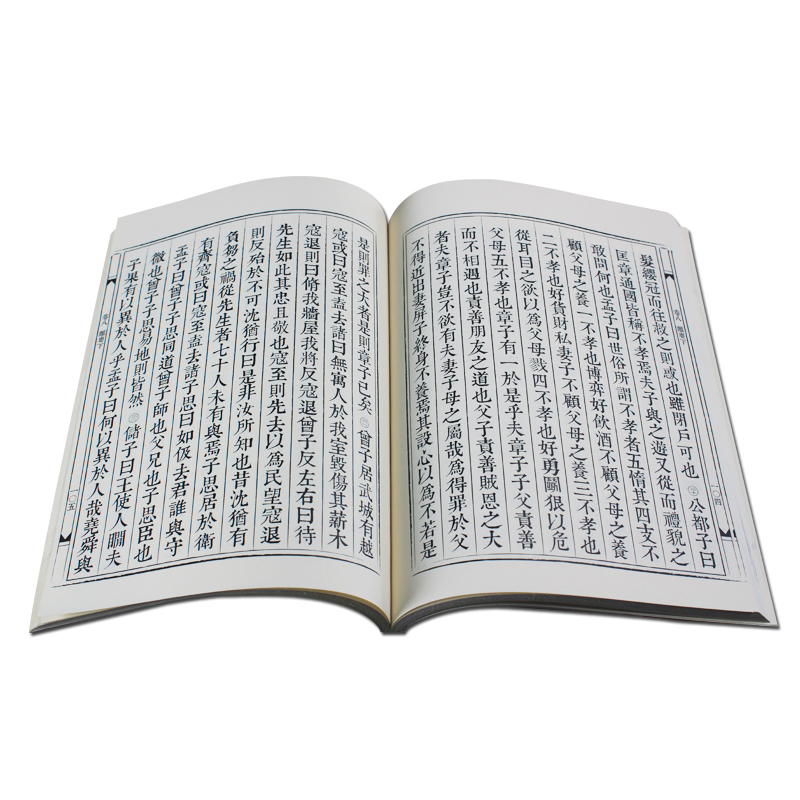 卷八 離婁下 一〇四
髮纓冠而往救之則惑也雖閉戶可也 公都子曰
匡章通國皆稱不孝焉夫子與之遊又從而禮貌之
敢問何也孟子曰世俗所謂不孝者五惰其四支不
顧父母之養一不孝也博弈好飲酒不顧父母之養
二不孝也好貨財私妻子不顧父母之養三不孝也
從耳目之欲以爲父母戮四不孝也好勇鬭很以危
父母五不孝也章子有一於是乎夫章子子父責善
而不相遇也責善朋友之道也父子責善賊恩之大
者夫章子豈不欲有夫妻子母之屬哉爲得罪於父
不得近出妻屏子終身不養焉其設心以爲不若是
是則罪之大者是則章子已矣 曾子居武城有越
寇或曰寇至盍去諸曰無寓人於我室毀傷其薪木
寇退則曰脩我牆屋我將反寇退曾子反左右曰待
先生如此其忠且敬也寇至則先去以爲民望寇退
則反殆於不可沈猶行曰是非汝所知也昔沈猶有
負芻之禍從先生者七十人未有與焉子思居於衛
有齊寇或曰寇至盍去諸子思曰如伋去君誰與守
孟子曰曾子子思同道曾子師也父兄也子思臣也
微也曾子子思易地則皆然 儲子曰王使人瞷夫
子果有以異於人乎孟子曰何以異於人哉堯舜與
卷八 離婁下 一〇五